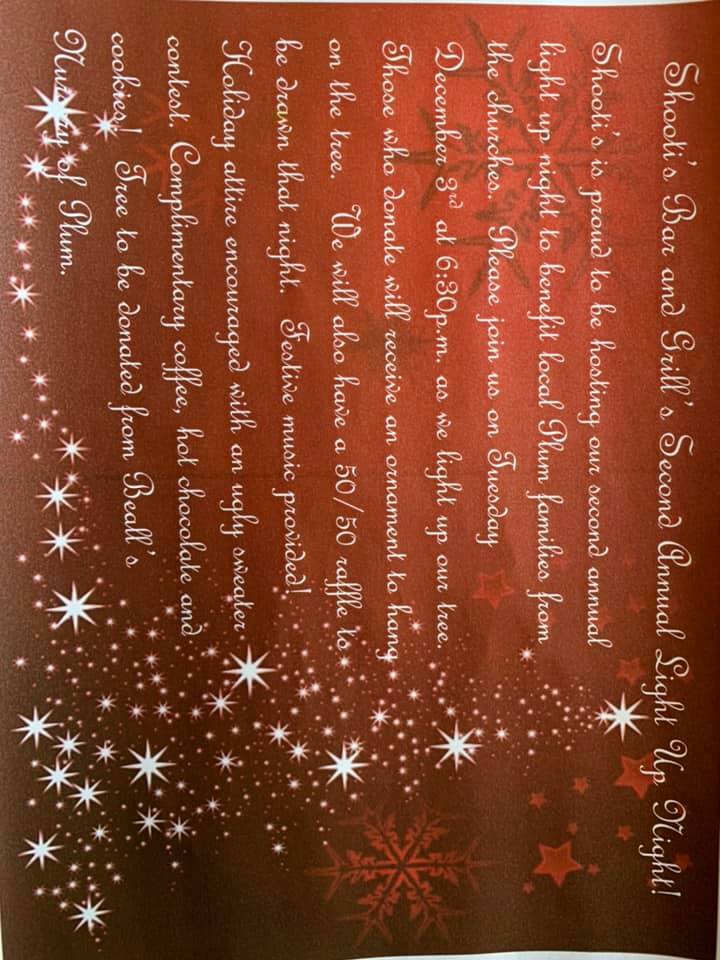 Shooti's Bar and Grill's Second Annual Light Up Night!
Shooti's is proud to be hosting our second annual
light up night to benefit local Plum families from
the churches. Please join us on Tuesday
December 3rd at 6:30p.m. as we light up our tree.
Those who donate will receive an ornament to hang
on the tree. We will also have a 50/50 raffle to
be drawn that night. Festive music provided!
Holiday attire encouraged with an ugly sweater
contest. Complimentary coffee, hot chocolate and
cookies! Tree to be donated from Beall's
Nursery of Plum.